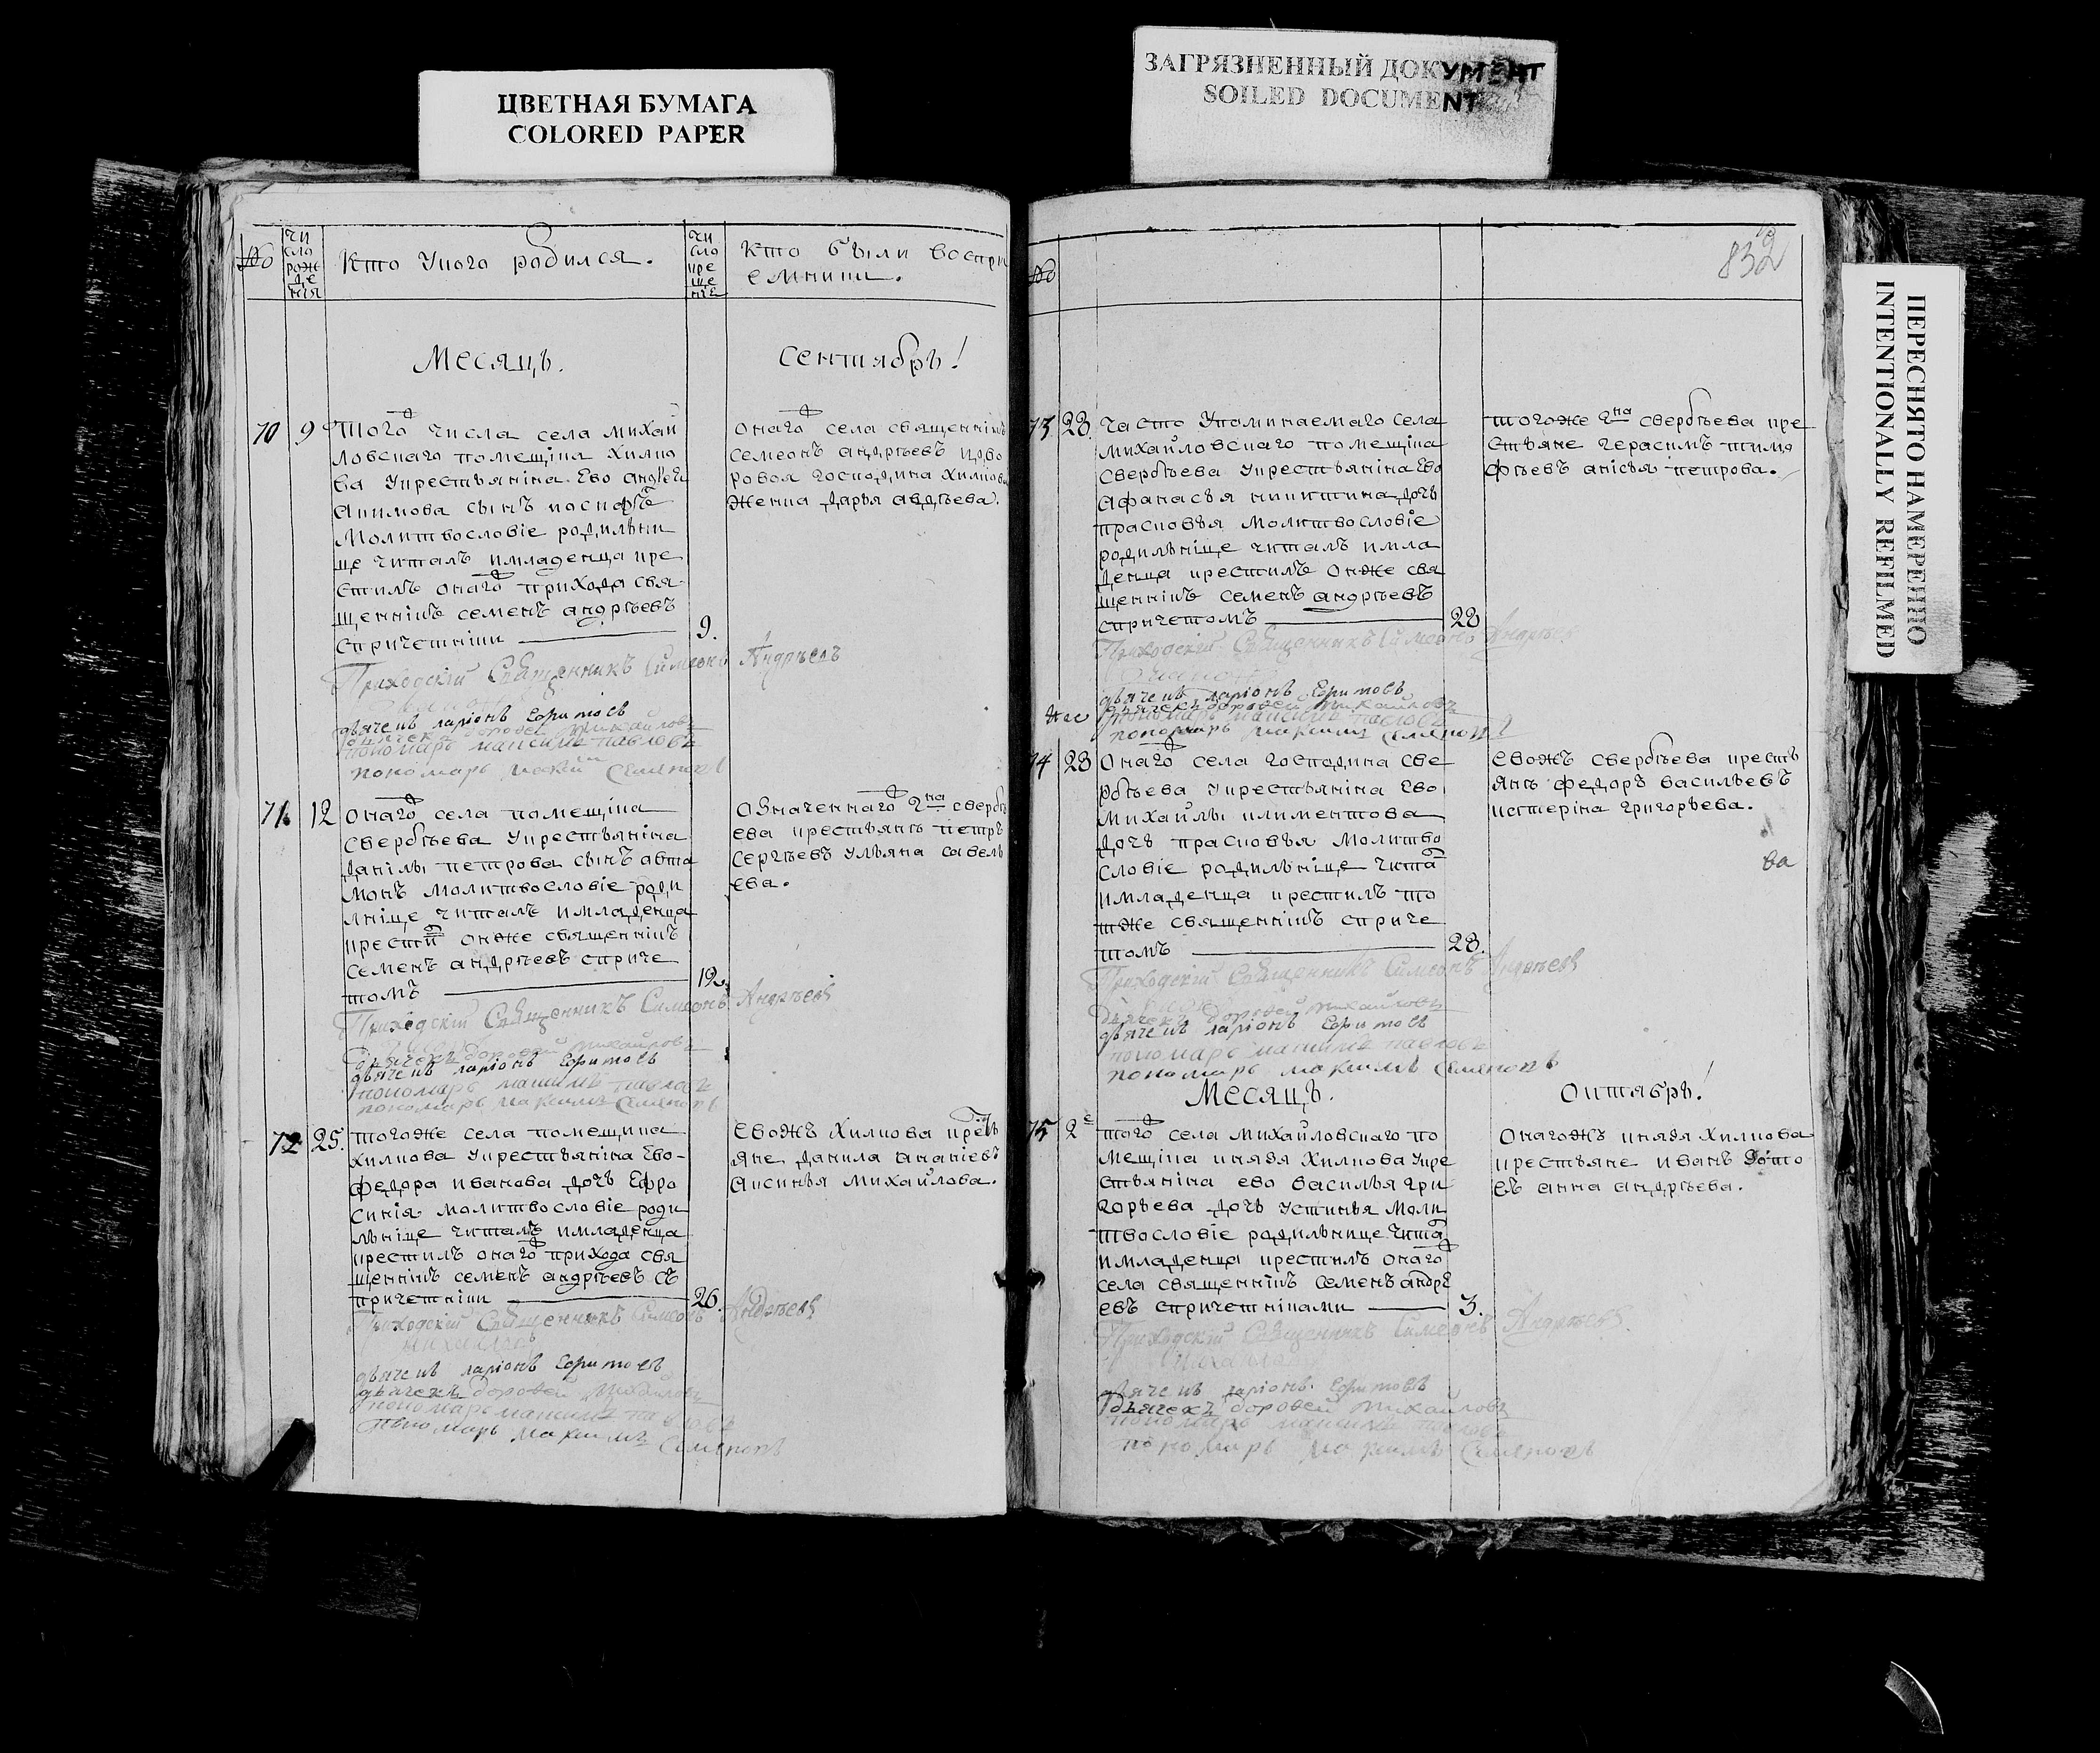 ЦВЕТНАЯ БУМАГА
COLORED PAPER
ЗАГРЯЗНЕННЫЙ ДОКУМЕНТ
SOILED DOCUMENT
ПЕРЕСНЯТО НАМЕРЕННО
INTENTIONALLY REFILMED
№
чи
сло
рож
де
нія
Кто Укого родился.
чи
сло
кре
ще
нія
Кто были воспри
емники.
Месяцъ.
Сентябрь!
70
9
Того числа села михай
ловскаго помещіка хилко
ва Укрестьяніна Ево андрея
акимова сынъ
Молитвословіе родильни
це читалъ имладенца кре
стилъ онаго прихода свя
щеннікъ семенъ андрѣевъ
спричетніки
9.
онаго села священнікъ
семеонъ андрѣевъ дво
ровоя господина хилкова
женка дарья авдѣева.
Приходскій Священникъ Симеонъ Андрѣевъ
дьячекъ ларіонъ Ефимовъ
дьячекъ дорофей михайловъ
пономарь максимъ павловъ
пономарь максим Семеновъ
71
12
онаго села помещіка
свербѣева Укрестьяніна
данилы петрова сынъ авта
монъ молитвословіе роди
лніце читалъ имладенца
крести онже священнікъ
семенъ андрѣевъ сприче
томъ
12.
означеннаго гна свербѣ
ева крестьянъ петръ
сергѣевъ Ульяна савель
ева.
Приходскій Священникъ Симеонъ Андрѣевъ
дьячекъ дорофей михайловъ
дьячекъ ларіонъ Ефимовъ
пономарь максимъ павловъ
пономарь максимъ Семеновъ
72
25.
тогоже села помещика
хилкова Укрестьяніна Ево
федора иванова дочь Ефро
синія молитвословіе роди
льніце читалъ имладенца
крестилъ онаго прихода свя
щеннікъ семенъ андрѣевъ съ
причетніки
26.
евожъ хилкова кресть
яне данила ананіевъ
аксинья михайлова.
Приходскій Священникъ Симеонъ Андрѣевъ
дьячекъ ларіонъ Ефимовъ
дьячекъ дорофей михайловъ
пономарь максимъ павловъ
пономарь максимъ Семеновъ
832
№
73
23.
часто Упоминаемаго села
михайловскаго помещіка
свербѣева Укрестьяніна Ево
афанасья никитина дочь
прасковья молитвословіе
родильніце читалъ имла
денца крестилъ онже свя
щеннікъ семенъ андрѣевъ
спричетомъ
23
тогоже гна свербѣева кре
стьяне герасимъ тимо
фѣевъ анісья петрова.
Приходскій Священникъ Симеонъ Андрѣевъ
дьячекъ ларіонъ Ефимовъ
дьячекъ дорофей михайловъ
пономарь максимъ павловъ
пономарь максимъ Семеновъ
74
23
онаго села господина све
рбѣева Укрестьяніна Ево
михайлы климентова
дочь прасковья молитво
словіе родильніце чита
имладенца крестилъ то
тже священнікъ сприче
томъ
23.
евожъ свербѣева кресть
янъ федоръ васильевъ
катеріна григорьева.
ва
Приходскій Священникъ Симеонъ Андрѣевъ
дьячекъ дорофей михайловъ
дьячекъ ларіонъ Ефимовъ
пономарь максимъ павловъ
пономарь максимъ Семеновъ
Месяцъ.
Октябрь!
75
2е
того села михайловскаго по
мещіка князя хилкова Укре
стьяніна ево василья гри
горьева дочь Устинья моли
твословіе родильнице чита
имладенца крестилъ онаго
села священнікъ семенъ андре
евъ спричетніками
3.
онагожъ князя хилкова
крестьяне иванъ
анна андрѣева.
Приходскій Священникъ Симеонъ Андрѣевъ
дьячекъ ларіонъ Ефимовъ
дьячекъ дорофей михайловъ
пономарь максимъ павловъ
пономарь максимъ Семеновъ